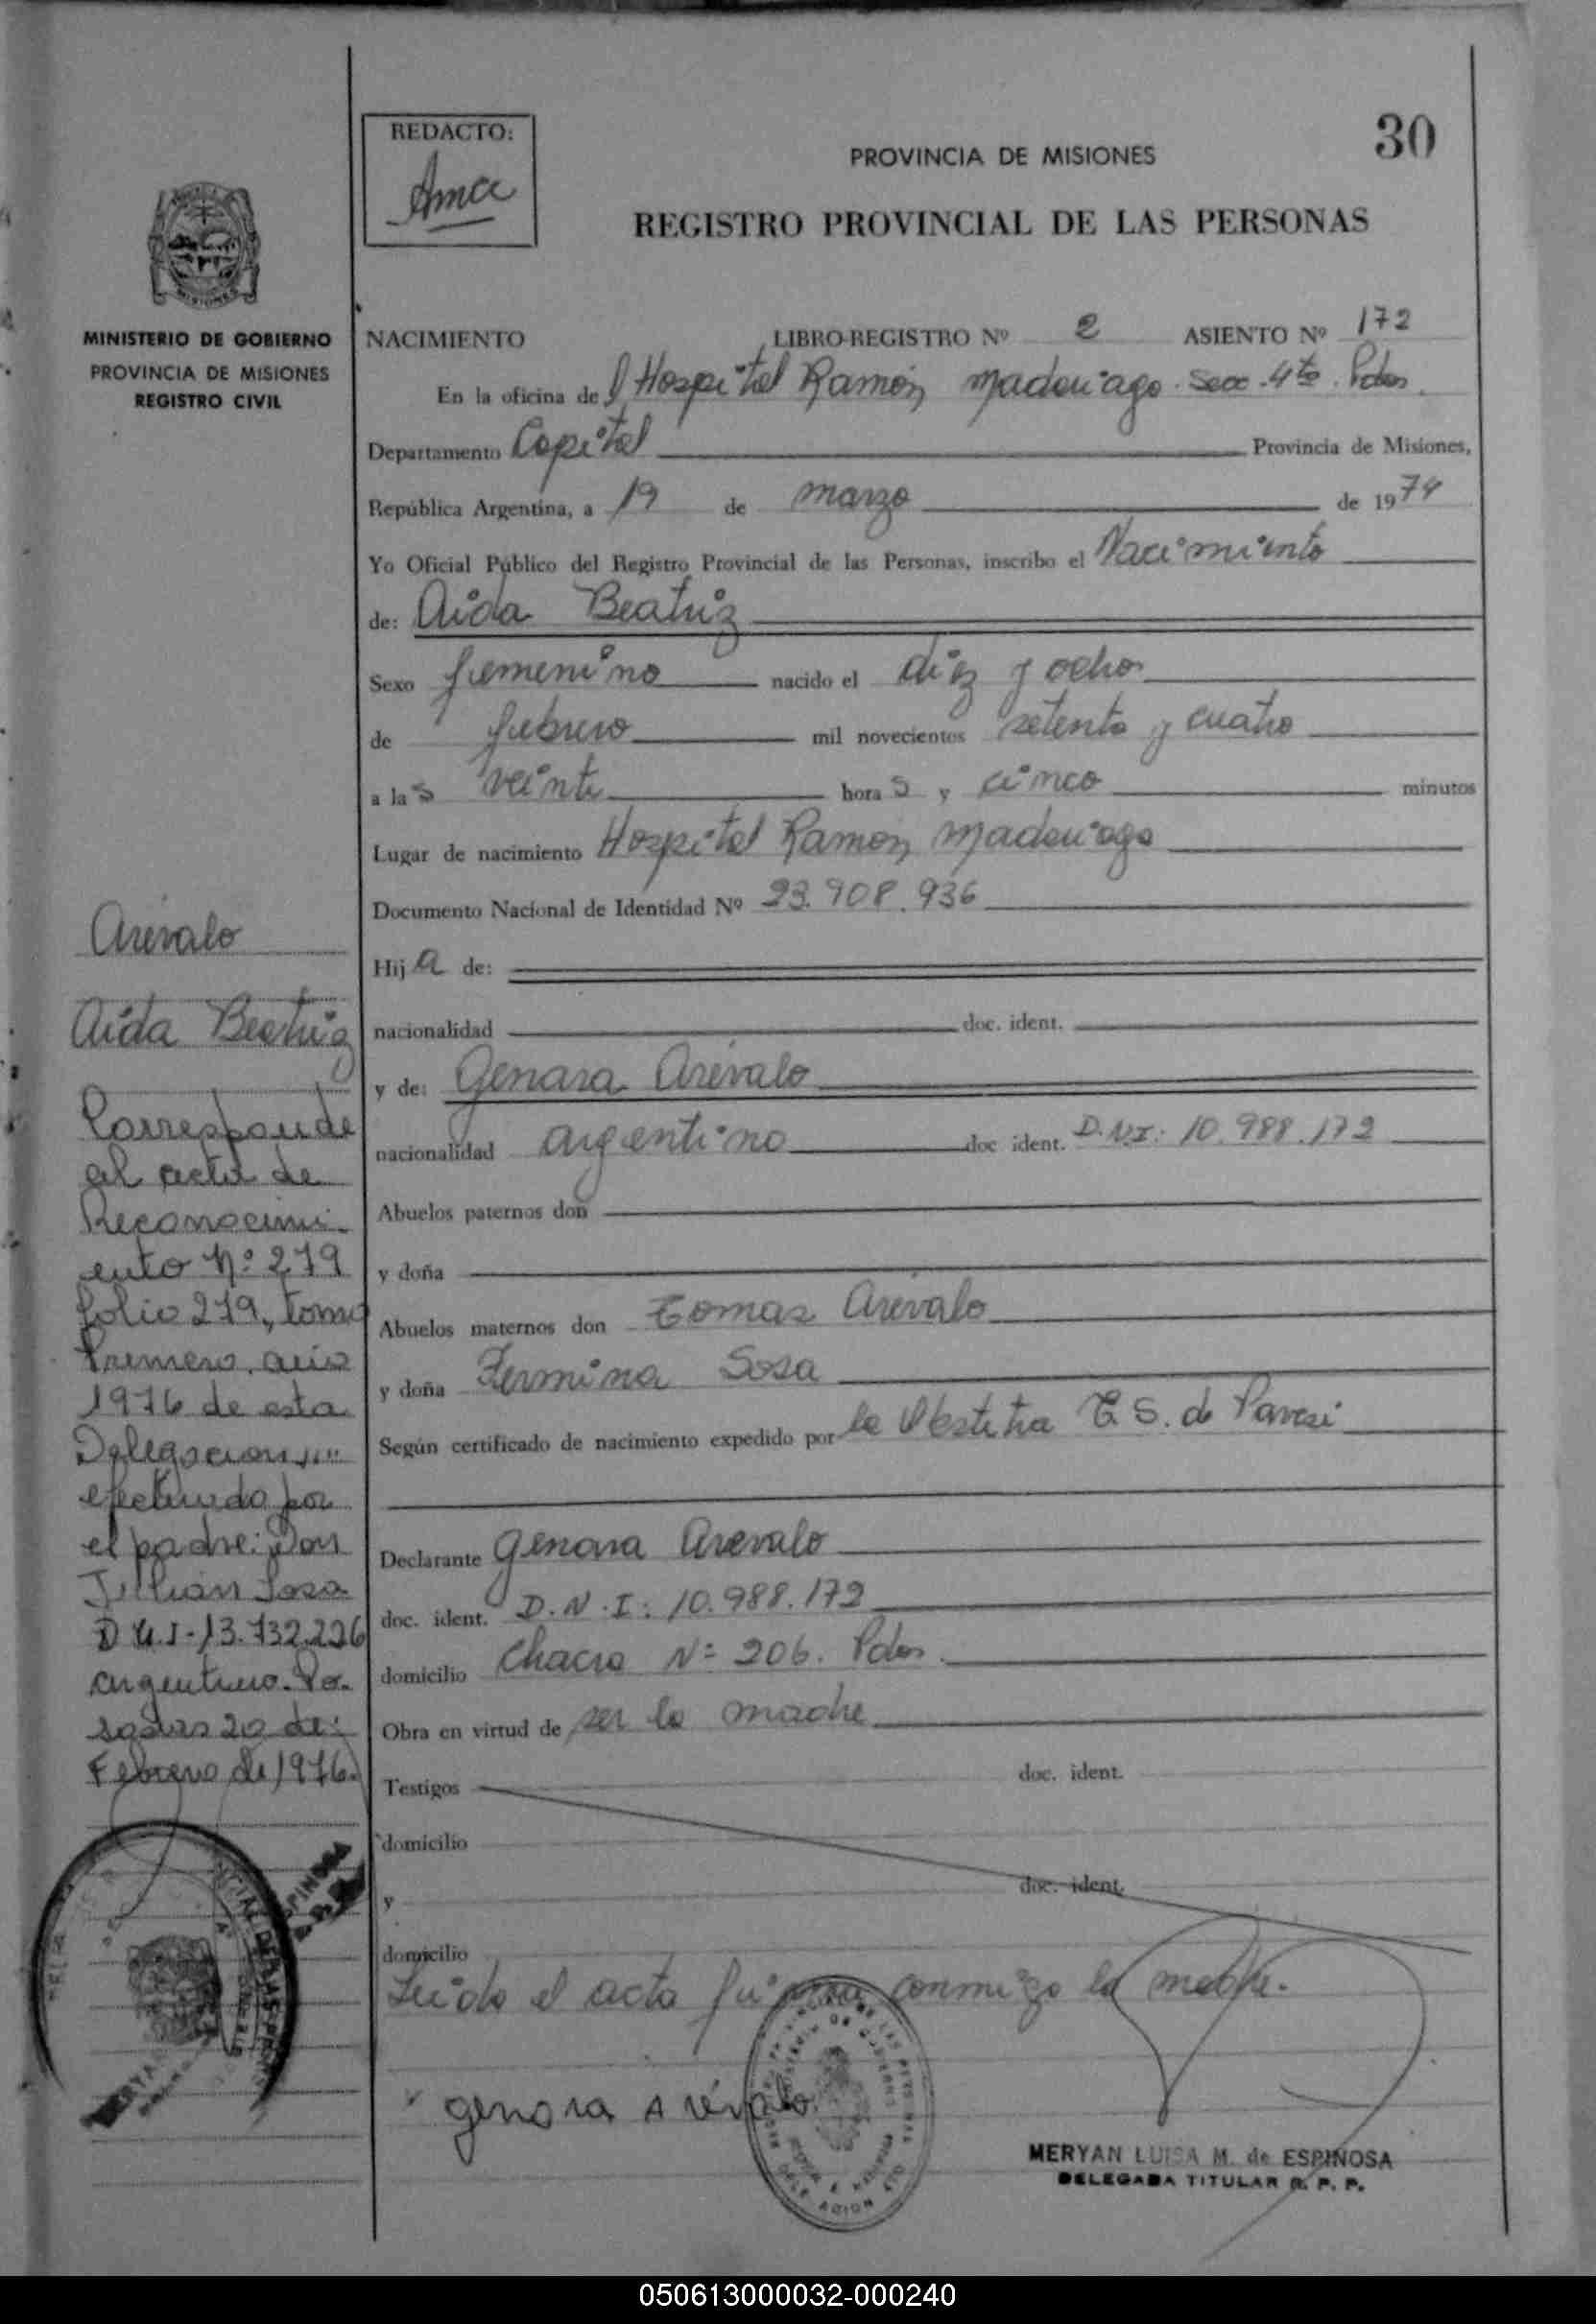 30
REDACTO:
Ama
PROVINCIA DE MISIONES
REGISTRO PROVINCIAL DE LAS PERSONAS
MISIONES
MINISTERIO DE GOBIERNO
PROVINCIA DE MISIONES
REGISTRO CIVIL
NACIMIENTO LIBRO-REGISTRO Nº 2 ASIENTO Nº 172
En la oficina del Hospital Ramón Madariaga. Secc. 4ta. Pdas.
Departamento Capital Provincia de Misiones,
República Argentina, a 19 de marzo de 1974
Yo Oficial Público del Registro Provincial de las Personas, inscribo el Nacimiento
de: Aida Beatriz
Sexo femenino nacido el diez y ocho
de febrero mil novecientos setenta y cuatro
a las veinte horas y cinco minutos
Lugar de nacimiento Hospital Ramón Madariaga
Documento Nacional de Identidad Nº 23.908.936
Hija de:
nacionalidad doc. ident.
y de: Genara Arévalo
nacionalidad argentino doc ident. D.N.I: 10.988.172
Abuelos paternos don
y doña
Abuelos maternos don Tomas Arévalo
y doña Fermina Sosa
Según certificado de nacimiento expedido por la Obstetra T. S. de Pavesi
Declarante Genara Arevalo
doc. ident. D.N.I: 10.988.172
domicilio Chacra Nº 206. Pdas.
Obra en virtud de ser la madre
Testigos doc. ident.
domicilio
y doc. ident.
domicilio
Leida el acta firma conmigo la madre.
genara Arévalo
MERYAN LUISA M. de ESPINOSA
DELEGADA TITULAR R. P. P.
Arévalo
Aida Beatriz
Corresponde
al acta de
Reconocimi-
ento Nº: 279
folio 279, tomo
Primero, año
1976 de esta
Delegacion
efectuado por
el padre: Don
Julián Sosa
D.N.I-13.732.226
argentino. Po-
sadas 20 de:
Febrero de 1976.
050613000032-000240